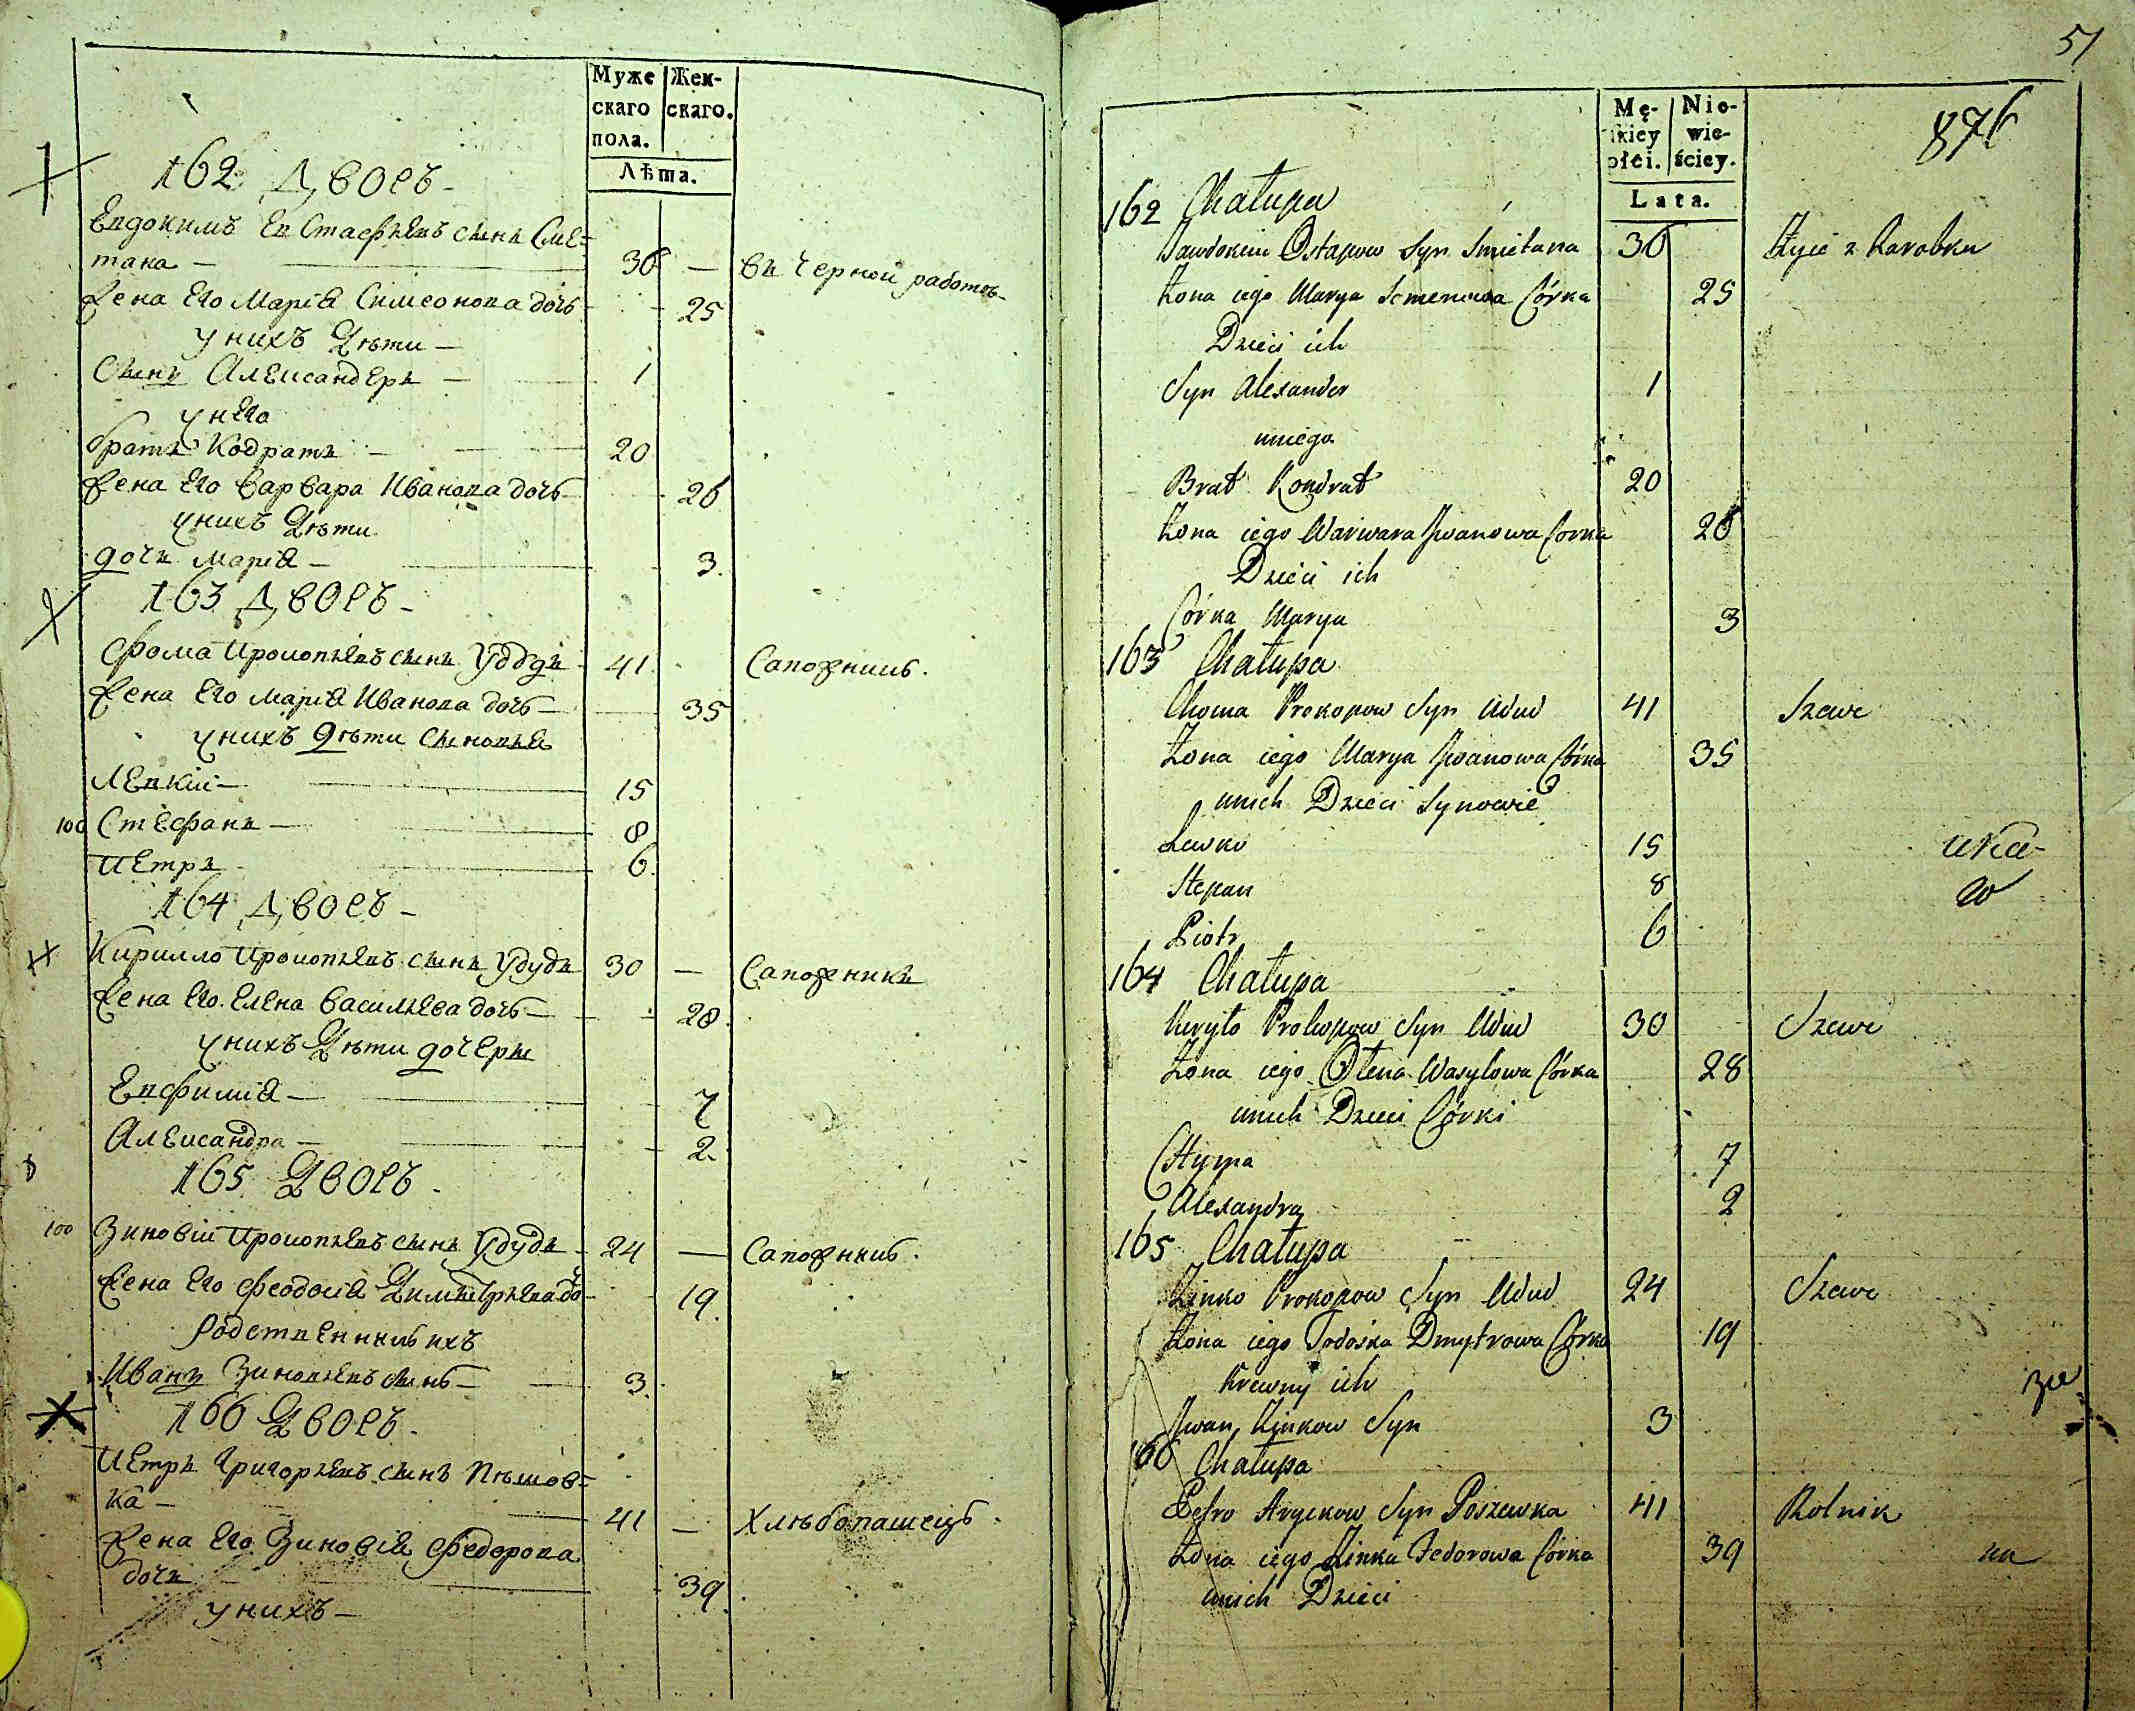 Муже
скаго
пола.
Жен-
скаго.
Лѣта.
162 Дворъ
Евдокимъ Евстафіевъ сынъ Сме-
тана — 36 — въ черной работѣ
Жена его Марія Симеонова дочь 25
у нихъ дѣти
Сынъ Александеръ 1
у него
братъ Кодратъ 20
Жена его Варвара Иванова дочь 26
у нихъ дѣти
дочь Марія 3
163 Дворъ
Фома Прокопьевъ сынъ Удудъ 41 Сапожникъ
Жена его Марія Иванова дочь 35
у нихъ дѣти сыновья
Левкій 15
100 Стефанъ 8
Петръ 6
164 Дворъ
Кирилло Прокопьевъ сынъ Удудъ 30 — Сапожникъ
Жена его Елена Васильева дочь 28
у нихъ дѣти дочери
Евфимія 7
Александра 2
165 Дворъ
100 Зиновій Прокопьевъ сынъ Удудъ 24 — Сапожникъ
Жена его Феодосія Димитріева до 19
Родственникъ ихъ
Иванъ Зиновьевъ сынъ 3
166 Дворъ
Петръ Григорьевъ сынъ Пѣшов-
ка — 41 — Хлѣбопашецъ
Жена его Зиновія Федорова
дочь 39
у нихъ
51
Mę-
kiey
płci.
Nie-
wie-
ściey.
Lata.
876
162 Chałupa
Jawdokim Ostapow Syn Smietana 36 Żyie z Zarobku
Żona iego Marya Semenowa Córka 25
Dzieci ich
Syn Alexander 1
u niego
Brat Kondrat 20
Żona iego Warwara Iwanowa Corka 26
Dzieci ich
Córka Marya 3
163 Chałupa
Choma Prokopow Syn Udud 41 Szewc
Żona iego Marya Iwanowa Córka 35
unich Dzieci Synowie
Lewko 15
Stepan 8
Piotr 6
164 Chałupa
Kiryło Prokopow Syn Udud 30 Szewc
Żona iego Ołena Wasylowa Córka 28
unich Dzieci Córki
7
Alexandra 2
165 Chałupa
Zinko Prokopow Syn Udud 24 Szewc
Żona iego Todoska Dmytrowa Córka 19
Krewny ich
Iwan Zinkow Syn 3
166 Chałupa
Petro Syn Poszewka 41 Rolnik
Żona iego Zinka Fedorowa Córka 39
unich Dzieci